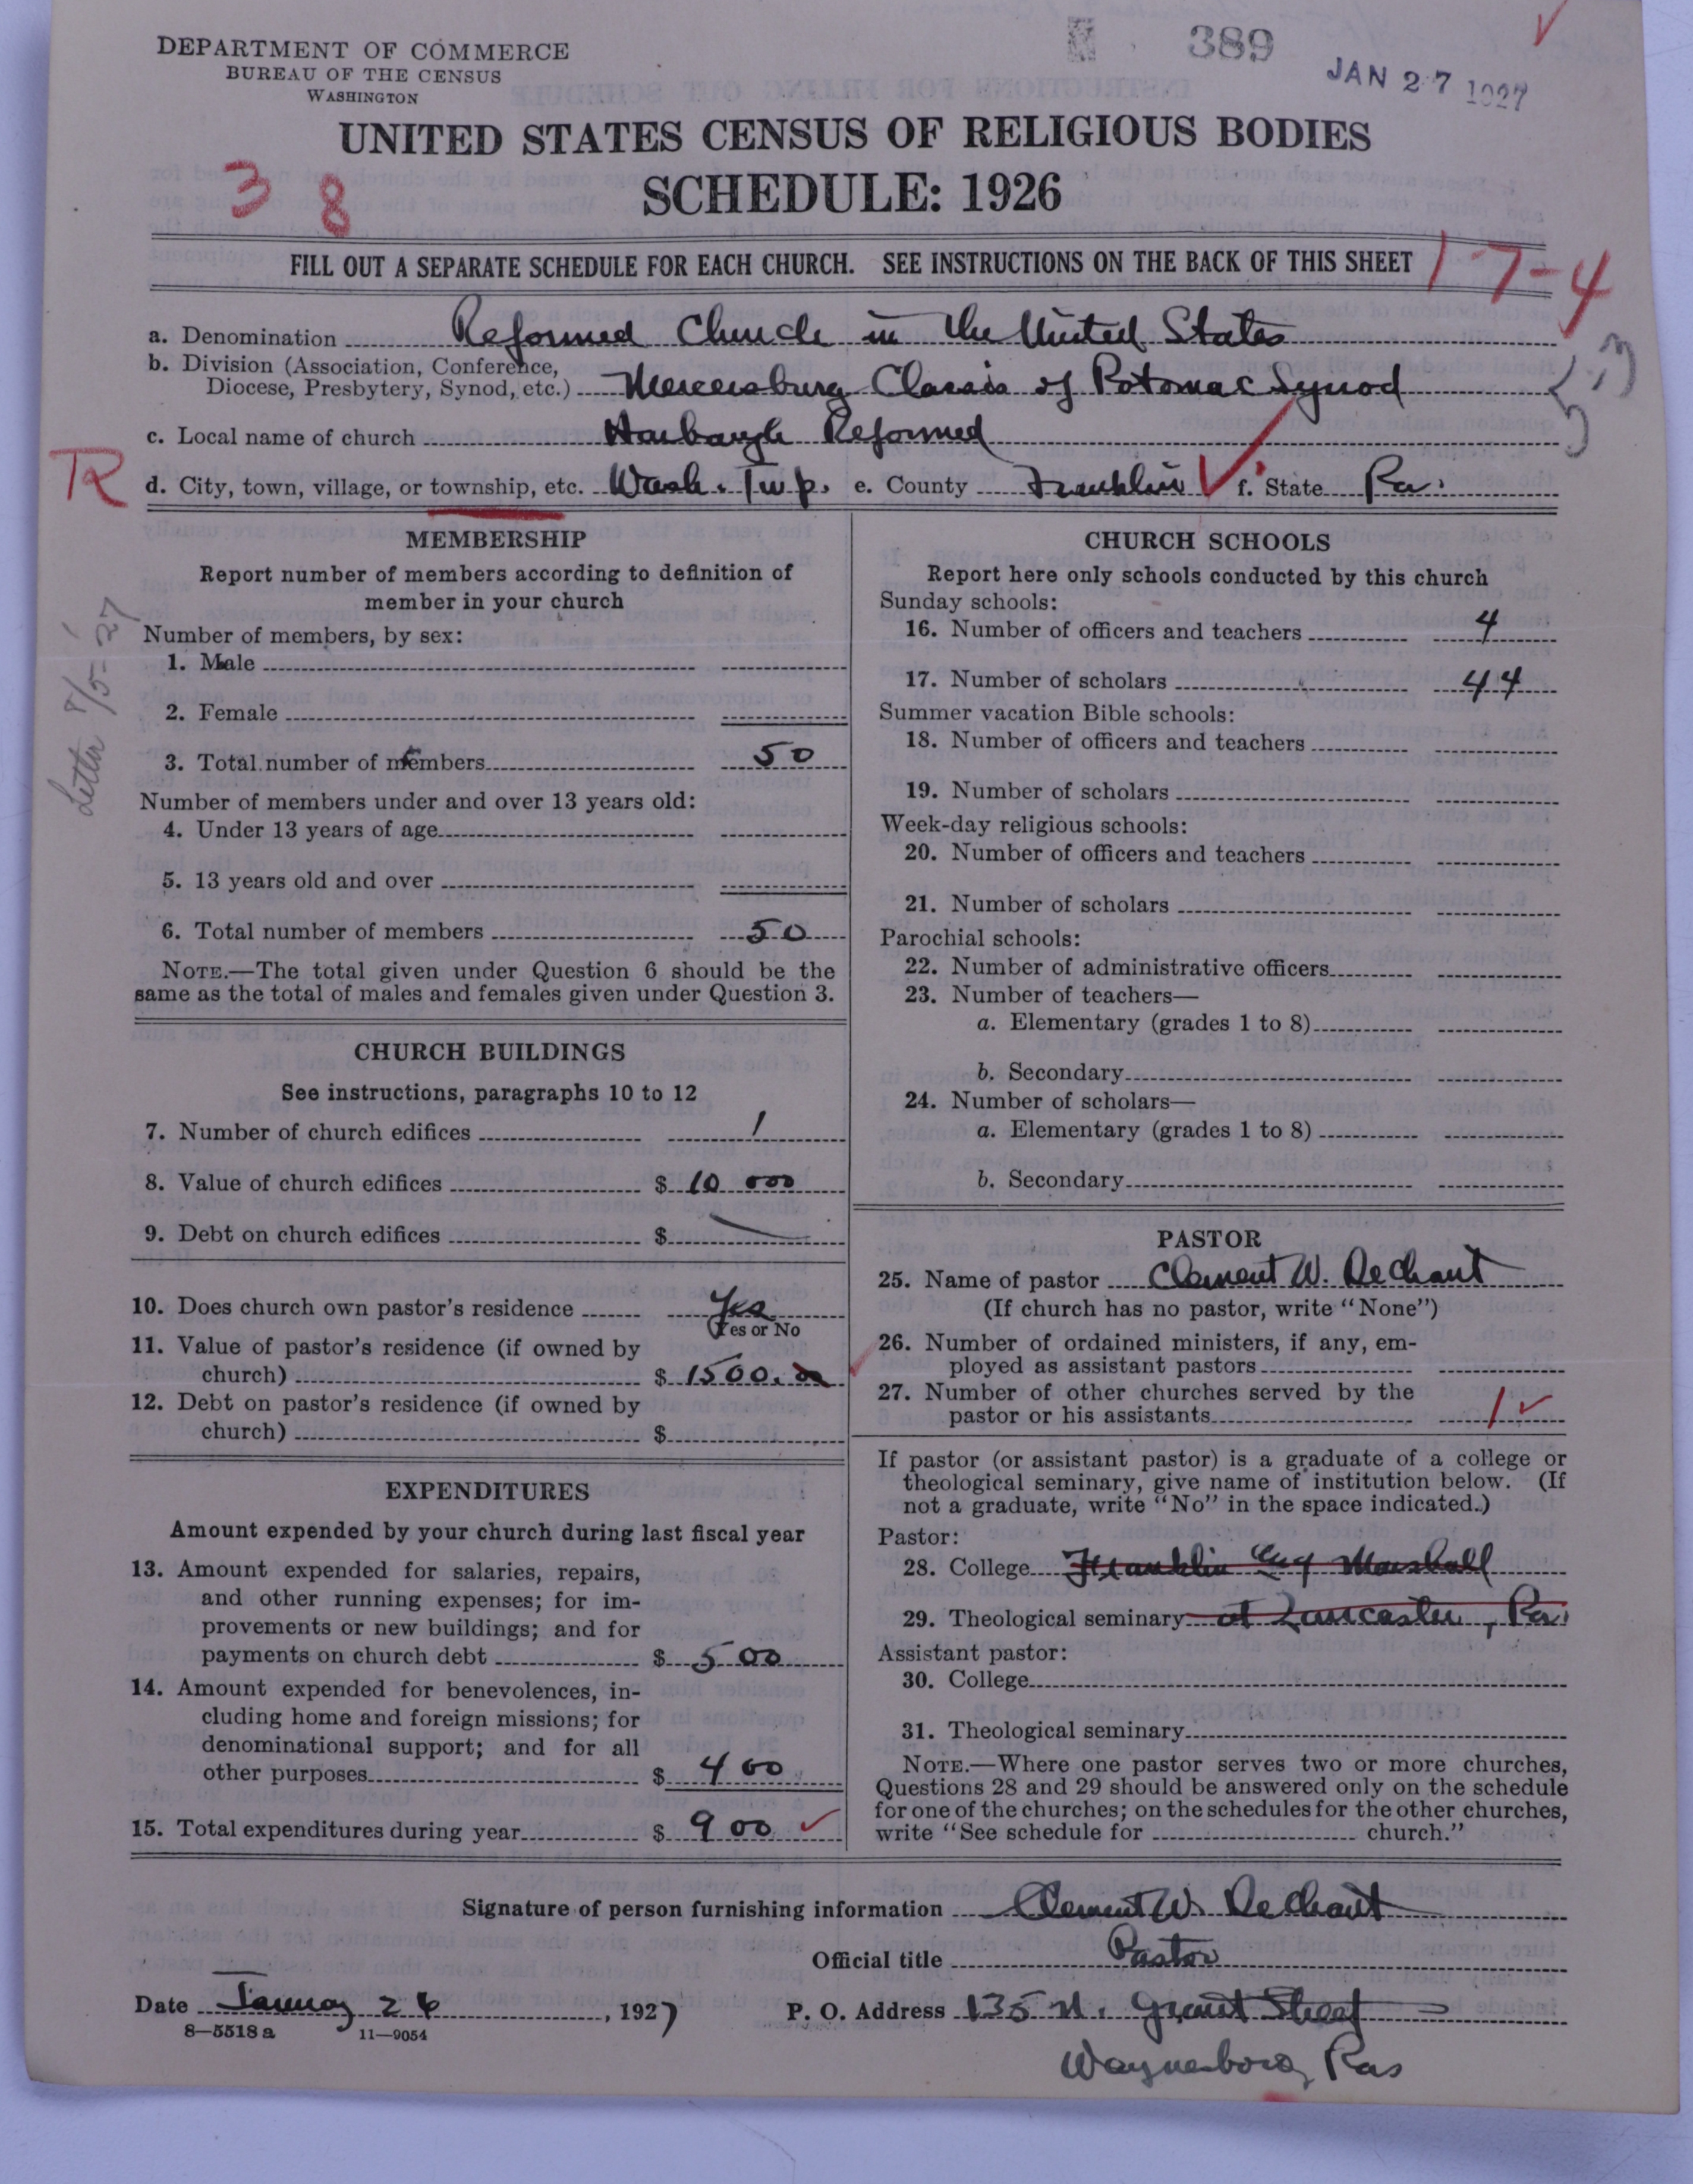 389
JAN 27 1927
DEPARTMENT OF COMMERCE
BUREAU OF THE CENSUS
WASHINGTON
UNITED STATES CENSUS OF RELIGIOUS BODIES
SCHEDULE: 1926
3 8
FILL OUT A SEPARATE SCHEDULE FOR EACH CHURCH. SEE INSTRUCTIONS ON THE BACK OF THIS SHEET
1-7-4
a. Denomination Reformed Church in the United States
b. Division (Association, Conference,
Diocese, Presbytery, Synod, etc.) Mercersburg Classis of Potomac Synod
c. Local name of church Harbaugh Reformed
R
d. City, town, village, or township, etc. Wash. Twp. e. County Franklin f. State Pa.
Letter 8/5-27
MEMBERSHIP
Report number of members according to definition of
member in your church
Number of members, by sex:
1. Male
2. Female
3. Total number of members 50
Number of members under and over 13 years old:
4. Under 13 years of age
5. 13 years old and over
6. Total number of members 50
NOTE.—The total given under Question 6 should be the
same as the total of males and females given under Question 3.
CHURCH BUILDINGS
See instructions, paragraphs 10 to 12
7. Number of church edifices 1
8. Value of church edifices $ 10 000
9. Debt on church edifices $
10. Does church own pastor's residence Yes
Yes or No
11. Value of pastor's residence (if owned by
church) $ 1500.00
12. Debt on pastor's residence (if owned by
church) $
EXPENDITURES
Amount expended by your church during last fiscal year
13. Amount expended for salaries, repairs,
and other running expenses; for im-
provements or new buildings; and for
payments on church debt $ 500
14. Amount expended for benevolences, in-
cluding home and foreign missions; for
denominational support; and for all
other purposes $ 400
15. Total expenditures during year $ 900
CHURCH SCHOOLS
Report here only schools conducted by this church
Sunday schools:
16. Number of officers and teachers 4
17. Number of scholars 44
Summer vacation Bible schools:
18. Number of officers and teachers
19. Number of scholars
Week-day religious schools:
20. Number of officers and teachers
21. Number of scholars
Parochial schools:
22. Number of administrative officers
23. Number of teachers—
a. Elementary (grades 1 to 8)
b. Secondary
24. Number of scholars—
a. Elementary (grades 1 to 8)
b. Secondary
PASTOR
25. Name of pastor Clement W. DeChant
(If church has no pastor, write "None")
26. Number of ordained ministers, if any, em-
ployed as assistant pastors
27. Number of other churches served by the
pastor or his assistants 1
If pastor (or assistant pastor) is a graduate of a college or
theological seminary, give name of institution below. (If
not a graduate, write "No" in the space indicated.)
Pastor:
28. College Franklin and Marshall
29. Theological seminary at Lancaster, Pa.
Assistant pastor:
30. College
31. Theological seminary
NOTE.—Where one pastor serves two or more churches,
Questions 28 and 29 should be answered only on the schedule
for one of the churches; on the schedules for the other churches,
write "See schedule for church."
Signature of person furnishing information Clement W. DeChant
Official title Pastor
Date January 26, 1927 P. O. Address 135 N. Grant Street
8—5518a 11—9054
Waynesboro, Pa